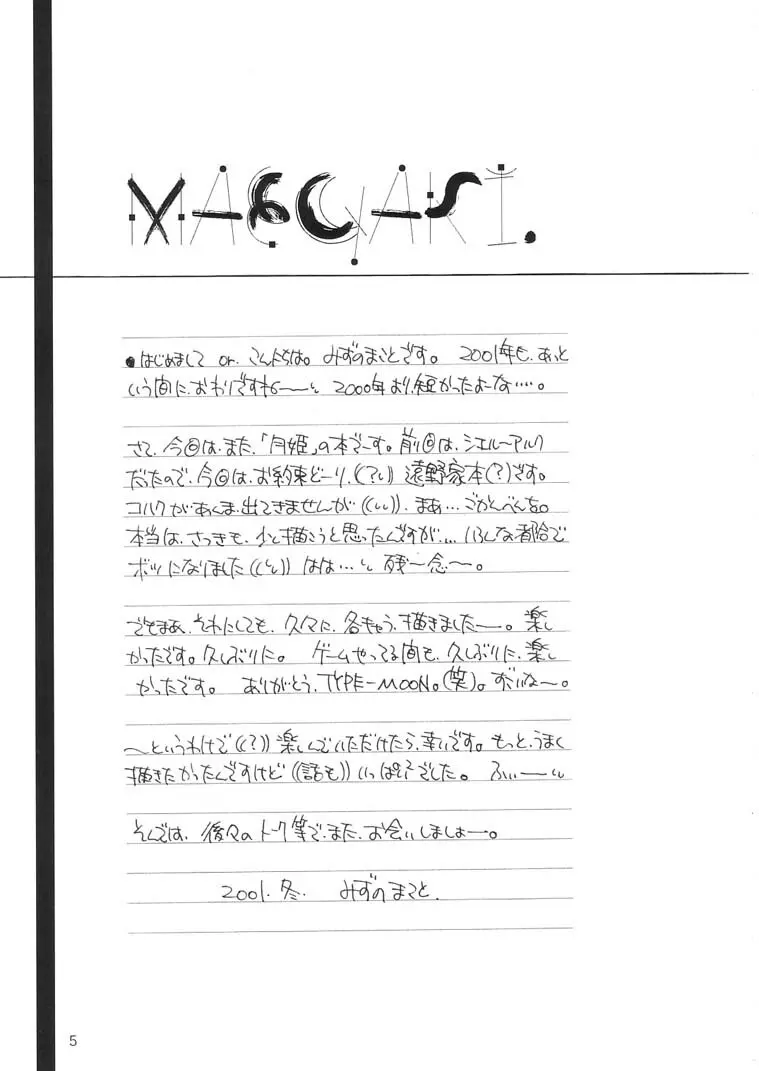 MAEGAKI.
●はじめまして or. こんにちは。みずのまことです。 2001年も、あっと
いう間に、おわりですね〜〜 2000年より、短かったよーな…‥。
さて、今回は、また、「月姫」の本でーす。前回は、シエルーアルク
だたので、今回は、お約束どーり、(?) 遠野家本(?)です。
コハクが、あんま、出てきませんが(()) まぁ…ごかんべんを。
本当は、さっきも、少し描こうと思ったんですが、… いろんな都合で
ボツになりました(()) はは…、残〜念〜。
でもまあ、それにしても、久々に、各キャラ、描きましたー。楽し
かったです。久しぶりに。 ゲームやってる間も、久しぶりに、楽し
かったです。 ありがとう、TYPE-MOON。(笑)。すごいな〜。
〜というわけで((?)) 楽しんでいただけたら、幸いです。もっと、うまく
描きたかったんですけど((話も)) いっぱいでした。 ふぃー
そんでは、後々のトーク等で、また、お会いしましょー。
2001. 冬. みずのまこと.
5